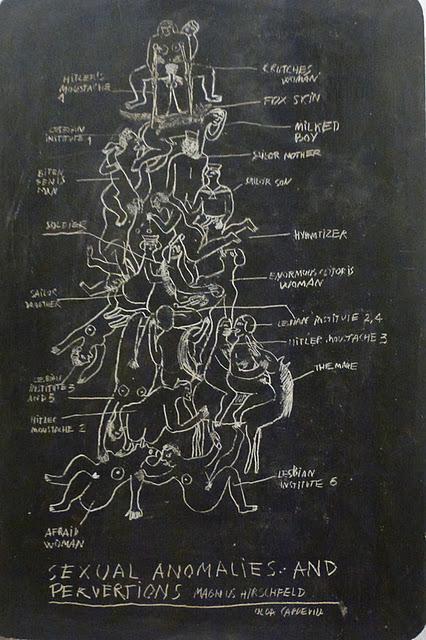 HITLER'S
MOUSTACHE
1
CRUTCHES
WOMAN
FOX SKIN
LESBIAN
INSTITUTE 1
MILKED
BOY
SAILOR MOTHER
BITEN
PENIS
MAN
SAILOR SON
SOLDIER
HYPNOTIZER
ENORMOUS CLITORIS
WOMAN
SAILOR
DAUGHTER
LESBIAN INSTITUTE 2, 4
HITLER MOUSTACHE 3
THE MARE
LESBIAN
INSTITUTE 3
AND 5
HITLER
MOUSTACHE 2
LESBIAN
INSTITUTE 6
AFRAID
WOMAN
SEXUAL ANOMALIES AND
PERVERTIONS MAGNUS HIRSCHFELD
OLGA CAPDEVILA